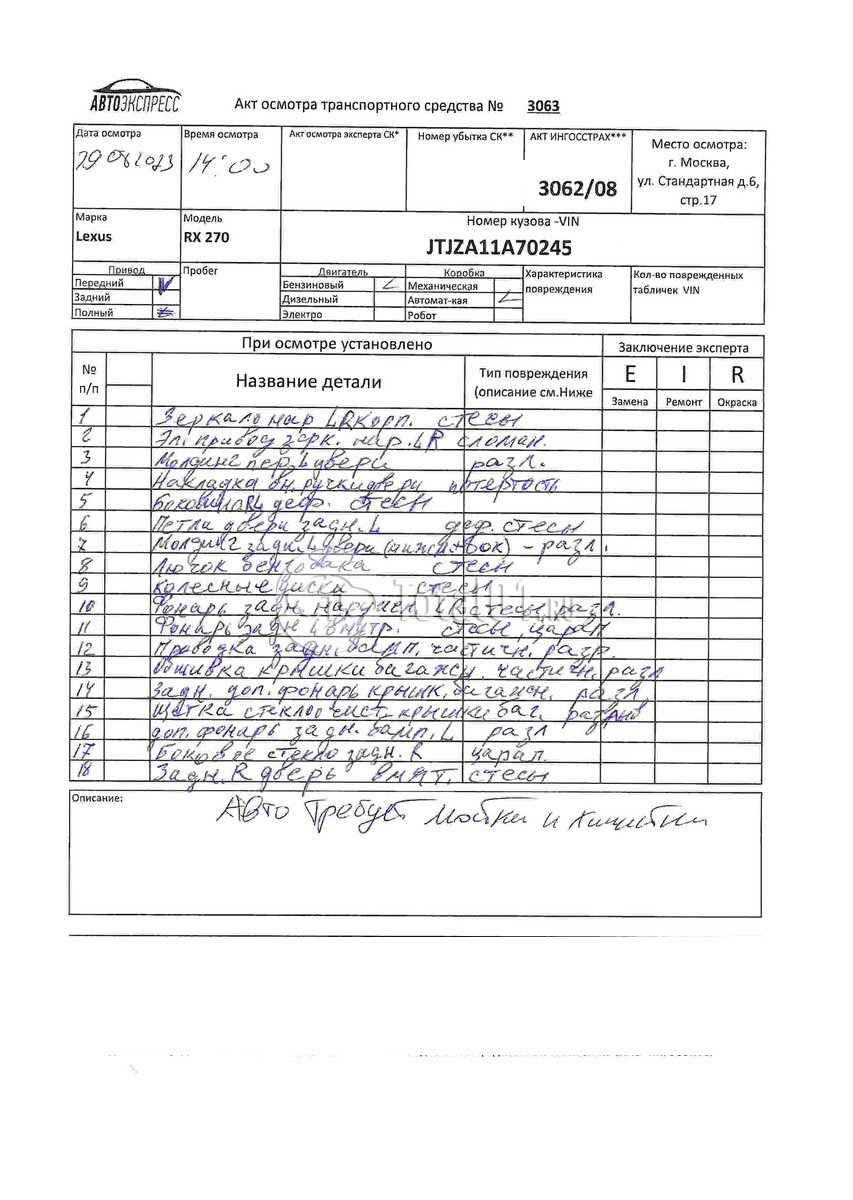 АВТОЭКСПРЕСС
Акт осмотра транспортного средства № 3063
Дата осмотра
29 08 2023
Время осмотра
14:00
Акт осмотра эксперта СК*
Номер убытка СК**
АКТ ИНГОССТРАХ***
3062/08
Место осмотра:
г. Москва,
ул. Стандартная д.6,
стр.17
Марка
Lexus
Модель
RX 270
Номер кузова -VIN
JTJZA11A70245
Привод
Передний
Задний
Полный
Пробег
Двигатель
Бензиновый
Дизельный
Электро
Коробка
Механическая
Автомат-кая
Робот
Характеристика
повреждения
Кол-во поврежденных
табличек VIN
При осмотре установлено
Заключение эксперта
№
п/п
Название детали
Тип повреждения
(описание см.Ниже
E I R
Замена Ремонт Окраска
1 Зеркало нар LR корп. стесы
2 Эл. привод зерк. нар. LR сломан.
3 Молдинг пер. L двери разл.
4 Накладка вн. ручки двери потертость
5 Боковина L деф. стесы
6 Петли двери задн. L деф. стесы
7 Молдинг задн. L двери (нижн + бок) - разл.
8 Лючок бензобака стесы
9 Колесные диски стесы
10 Фонарь задн наружн LR стесы, разл.
11 Фонарь задн L внутр. стесы, царап
12 Проводка задн. бамп. частичн. разр.
13 Обшивка крышки багажн. частичн. разл
14 Задн. доп. фонарь крышк. багажн. разл
15 Щетка стеклоочист. крышки баг.
16 доп. фонарь задн. бамп. L разл
17 Боковое стекло задн. R царап.
18 Задн. R дверь вмят. стесы
Описание:
Авто требует мойки и химчистки